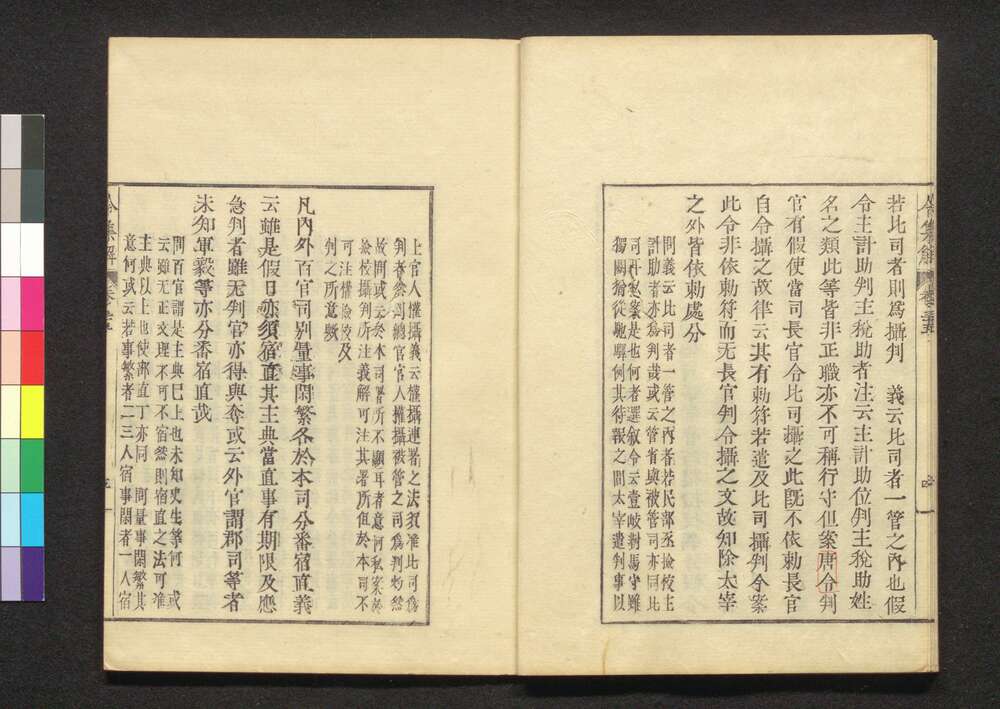 若比司者則爲攝判　義云比司者一管之內也假
令主計助判主稅助者注云主計助位判主稅助姓
名之類此等皆非正職亦不可稱行守但案唐令判
官有假使當司長官令比司攝之此旣不依勅長官
自令攝之故律云其有勅符若遣及比司攝判今案
此令非依勅符而无長官判令攝之文故知除太宰
之外皆依勅處分
問義云比司者一管之內者若民部丞撿校主
計助者亦爲判哉或云管省與被管司亦同比
司幷私案是也何者選叙令云壹岐對馬守雖
獨闕猶從馳驛何其待報之間太宰遣判事以
上官人權攝義云權攝連署之法須准比司爲
判者然則總官官人權攝被管之司爲判物然
故問或云於本司署所不顯耳者意何私案於
撿校攝判所注義解可注其署所但於本司不
可注權撿校及
判之所意歟
凡內外百官司別量事閑繁各於本司分番宿直義
云雖是假日亦須宿直其主典當直事有期限及應
急判者雖无判官亦得與奪或云外官謂郡司等者
未知軍毅等亦分番宿直哉
問百官謂是主典已上也未知史生等何　或
云雖无正文理不可不宿然則宿直之法可准
主典以上也使部直丁亦同　問量事閑繁其
意何或云若事繁者二三人宿事閑者一人宿
令集解
令集解